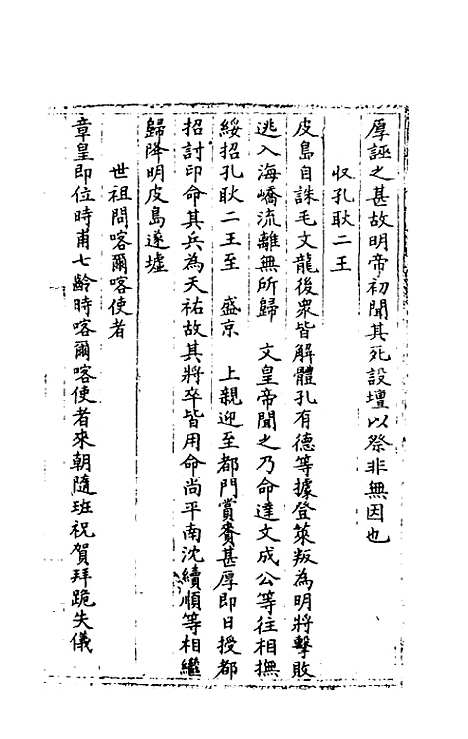 厚誣之甚故明帝初聞其死設壇以祭非無因也
收孔耿二王
皮島自誅毛文龍後衆皆解體孔有德等據登萊叛為明將擊敗
逃入海嶠流離無所歸 文皇帝聞之乃命達文成公等往相撫
綏招孔耿二王至 盛京 上親迎至都門賞賚甚厚即日授都
招討印命其兵為天祐故其將卒皆用命尚平南沈續順等相繼
歸降明皮島遂墟
世祖問喀爾喀使者
章皇即位時甫七齡時喀爾喀使者來朝隨班祝賀拜跪失儀